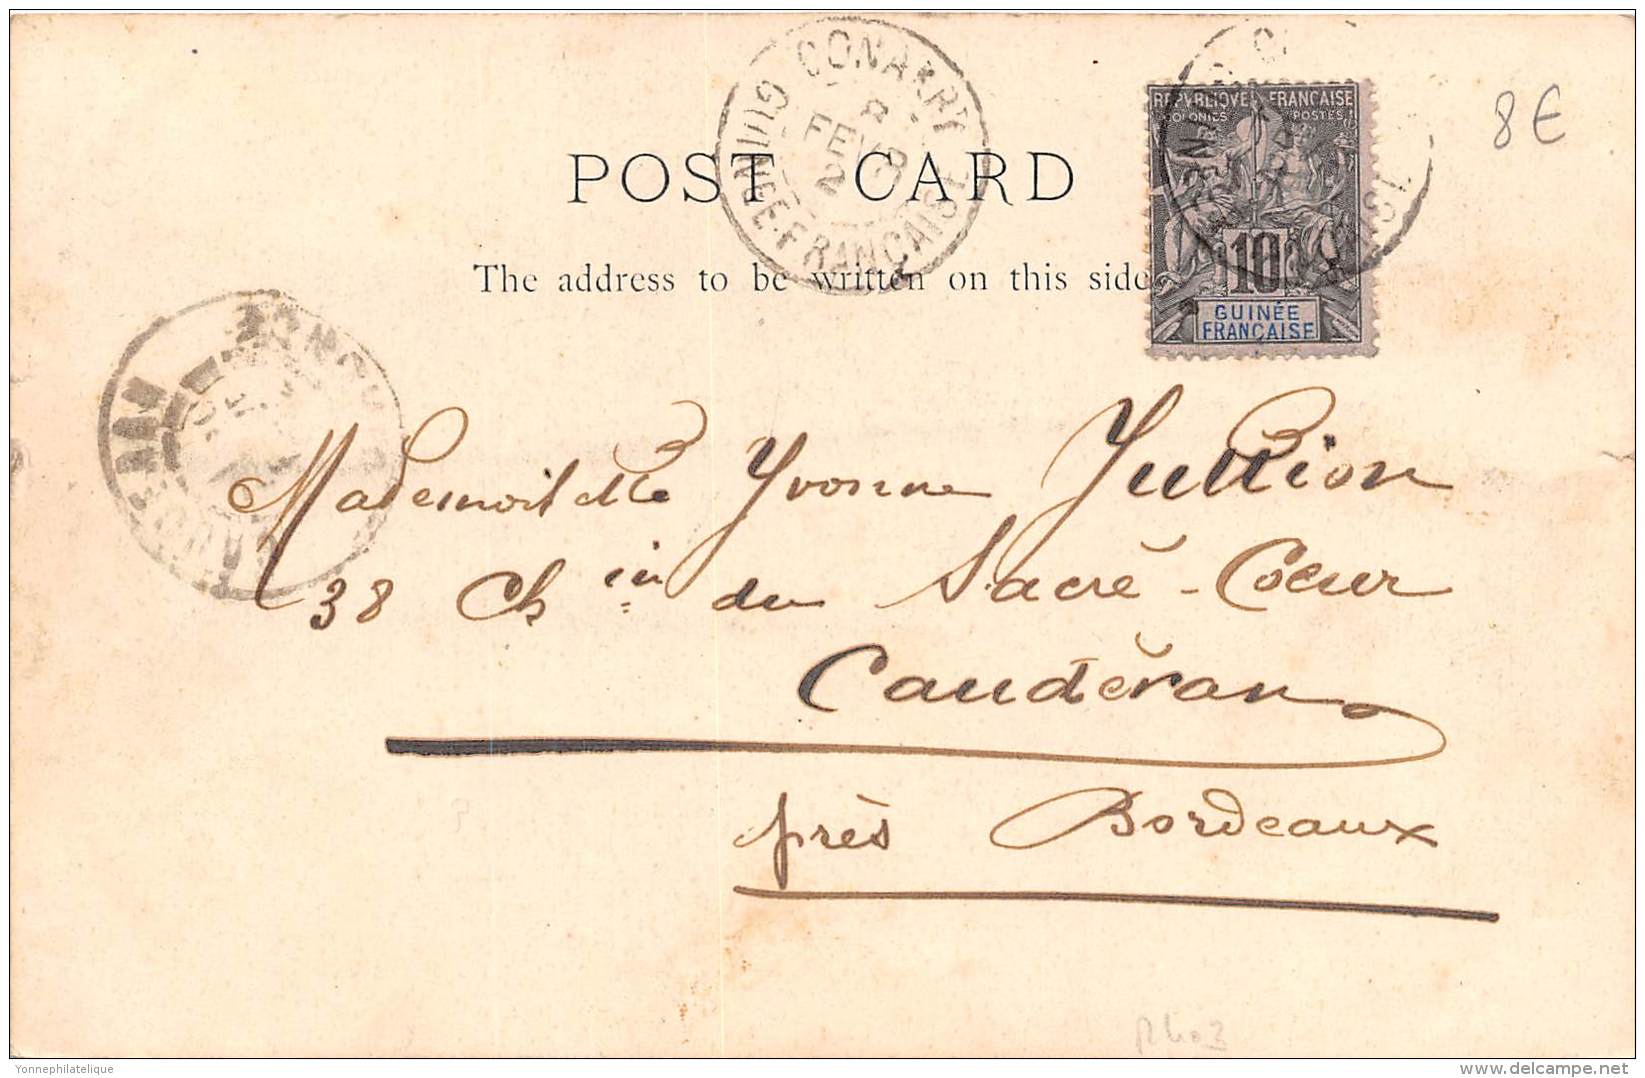 CONAKRY
GUINÉE-FRANÇAISE
8
FEVR
REPVBLIQVE FRANÇAISE
COLONIES POSTES
10
GUINÉE
FRANÇAISE
8€
POST CARD
The address to be written on this side
Mademoiselle Yvonne Jullion
38 Ch in du Sacré-Coeur
Caudéran
près Bordeaux
Yonnephilatelique
delcampe.net